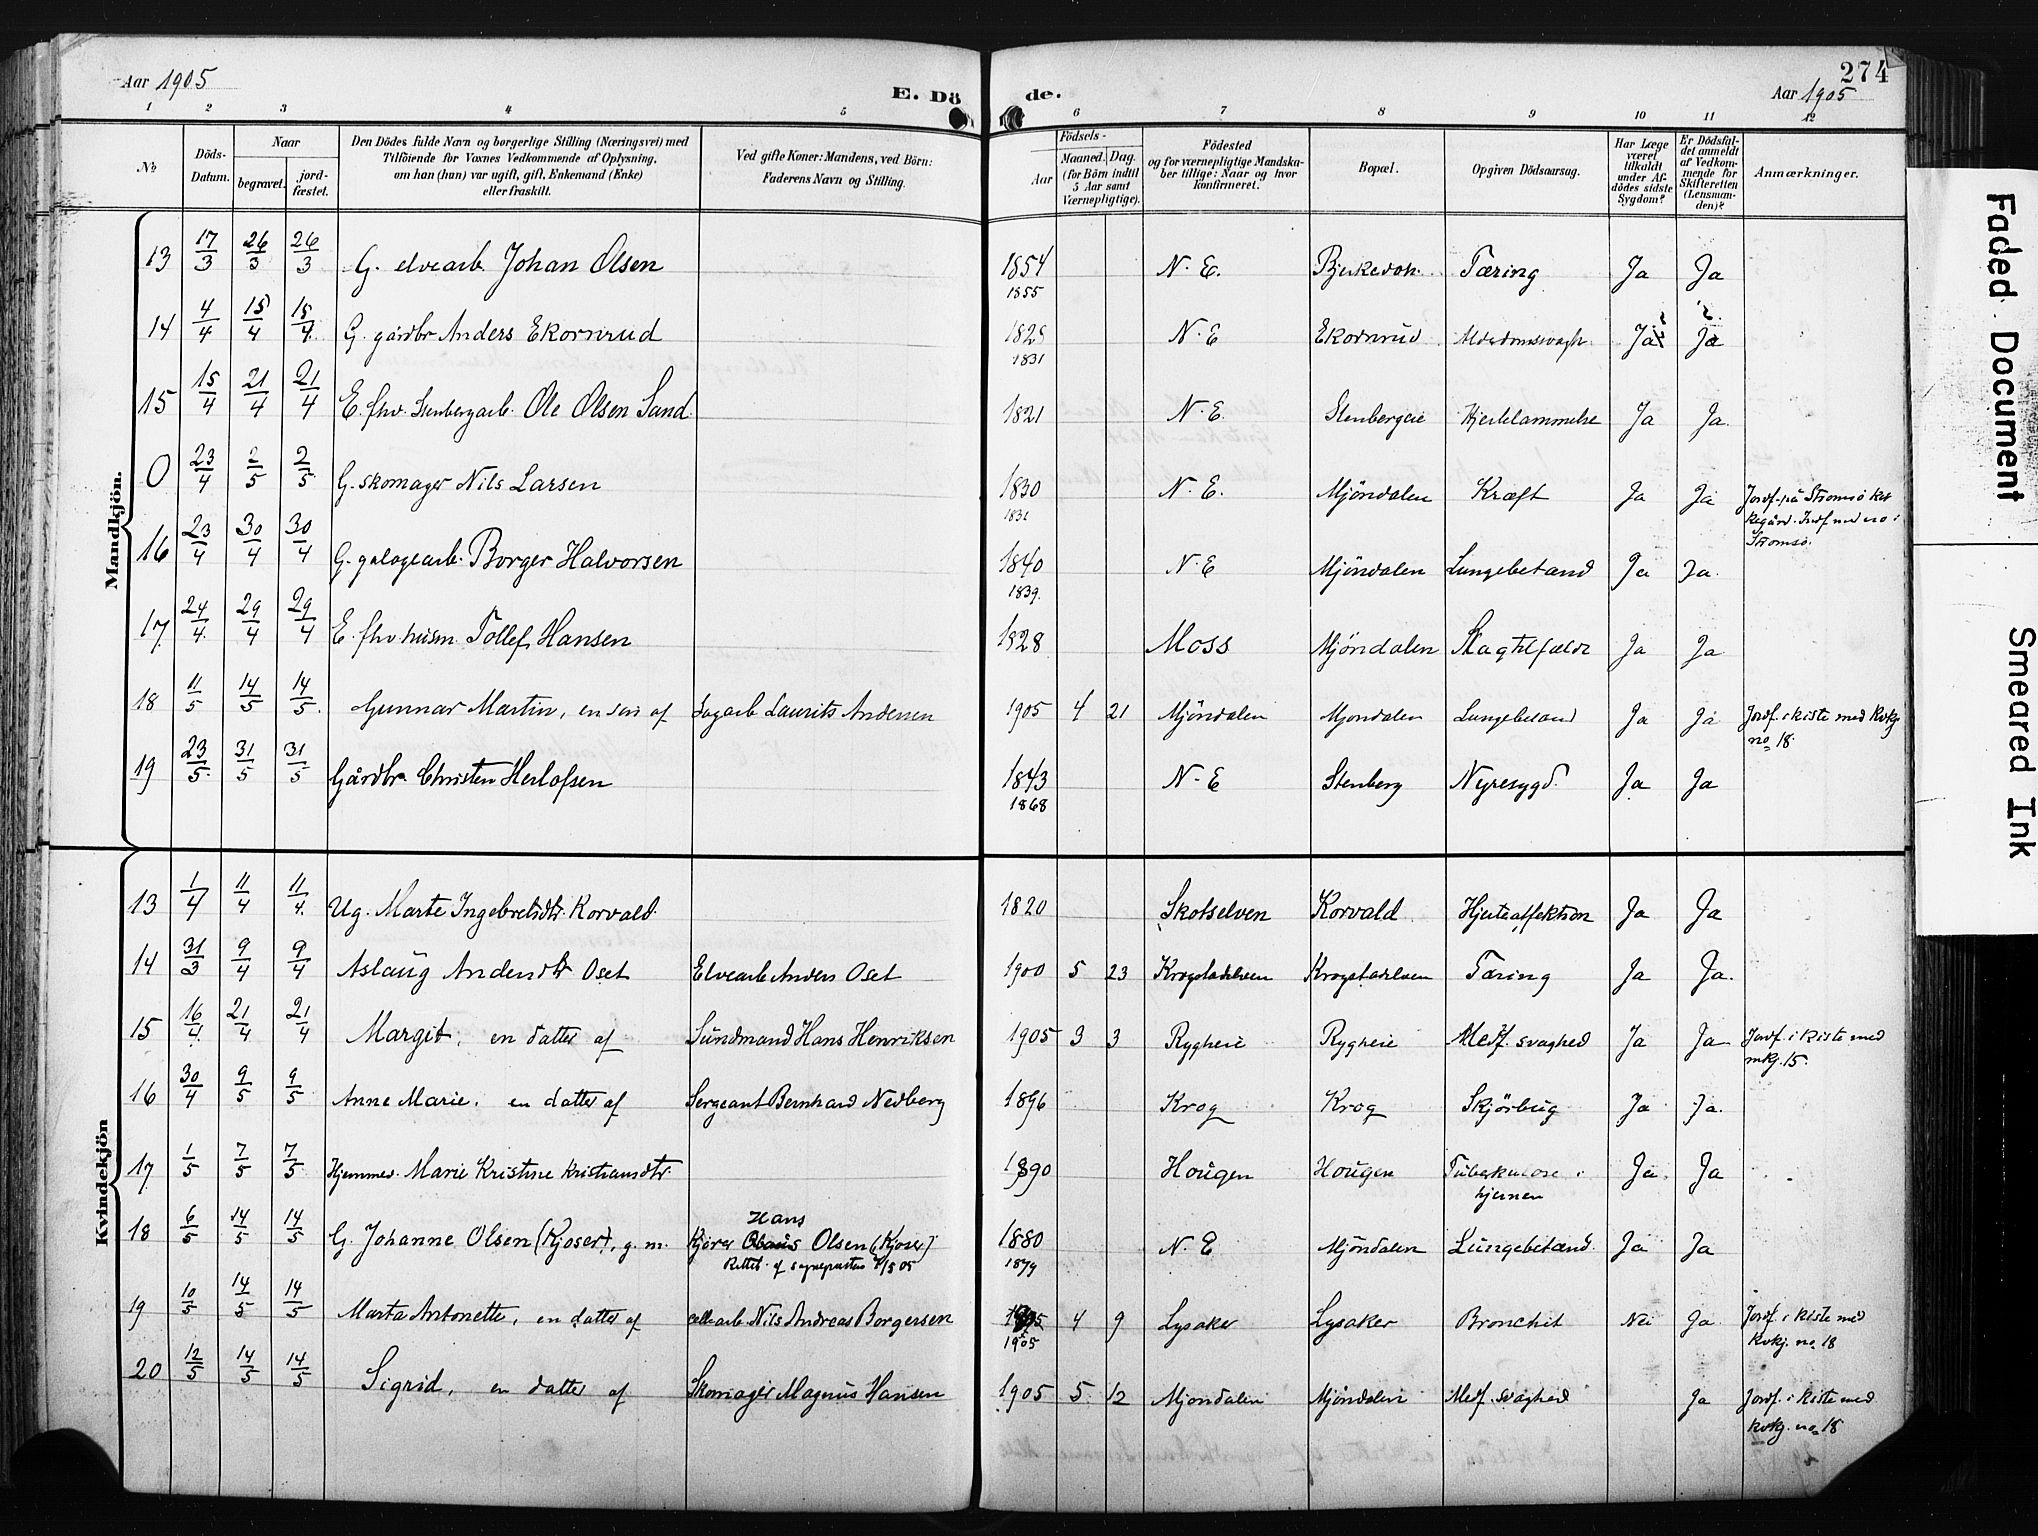 Aar 1905
E. Döde.
274
Aar 1905
1 2 3 4 5 6 7 8 9 10 11 12
No.
Döds-Datum.
Naar
begravet.
jord-fæstet.
Den Dödes fulde Navn og borgerlige Stilling (Næringsvei) med
Tilföiende for Voxnes Vedkommende af Oplysning,
om han (hun) var ugift, gift, Enkemand (Enke)
eller fraskilt.
Ved gifte Koner: Mandens, ved Börn:
Faderens Navn og Stilling.
Födsels-
Aar
Maaned. Dag.
(for Börn indtil
5 Aar samt
Værnepligtige).
Födested
og for værnepligtige Mandska-
ber tillige: Naar og hvor
konfirmeret.
Bopæl.
Opgiven Dödsaarsag.
Har Læge
været
tilkaldt
under Af-
dödes sidste
Sygdom?
Er Dödsfal-
det anmeldt
af Vedkom-
mende for
Skifteretten
(Lensman-
den)?
Anmærkninger.
Mandkjön.
13 17/3 26/3 26/3 G. elvearb. Johan Olsen 1854 1855 N. E. Tæring Ja Ja
14 4/4 15/4 15/4 G. gårdbr Anders Ekornrud 1829 1831 N. E Ekornrud Alderdomssvagh. Ja Ja
15 15/4 21/4 21/4 E. fhv. Stenbergarb. Ole Olsen Sand 1821 N. E. Stenbergeie Hjertelammelse Ja Ja.
0 23/4 2/5 2/5 G. skomager Nils Larsen 1830 1831 N. E. Mjöndalen Kræft Ja Ja Jordf. på Strömsö kir
kegård. Indf med no i
Strömsö.
16 23/4 30/4 30/4 G. galogearb. Borger Halvorsen 1840 1839. N. E Mjöndalen Lungebetænd Ja Ja.
17. 24/4 29/4 29/4 E. fhv. husm. Tollef Hansen 1828 Moss Mjöndalen Ja Ja
18 11/5 14/5 14/5 Gunnar Martin, en sön af Sagarb Laurits Andersen 1905 4 21 Mjöndalen Mjondalen Lungebetænd Ja Ja Jordf. i kiste med kvkj
no 18.
19 23/5 31/5 31/5 Gårdbr. Christen Herlofsen 1843 1868 N. E Stenberg Nyresygd. Ja Ja
Kvindekjön
13 1/4 11/4 11/4 Ug. Marte Ingebretsdtr. Korvald. 1820 Skotselven Korvald Hjerteaffektion Ja Ja
14 31/3 9/4 9/4 Aslaug Andersdtr Oset Elvearb Anders Oset 1900 5 23 Krogstadelven Krogstadelven Tæring Ja Ja.
15 16/4 21/4 21/4 Margit, en datter af Sundmand Hans Henriksen 1905 3 3 Rygheie Rygheie Medf. svaghed Ja Ja Jordf. i kiste med
mkj. 15.
16 30/4 9/5 9/5 Anne Marie, en datter af Sergeant Bernhard Nedberg 1896 Krog Krog Skjörbug Ja Ja.
17 1/5 7/5 7/5 Hjemmev. Marie Kristine Kristiansdtr. 1890 Hougen Hougen Tuberkulose i
hjernen Ja. Ja
18 6/5 14/5 14/5 G. Johanne Olsen (Kjoser), g. m. Kjörer Hans Olsen (Kjoser)
Rettet af sogneprsten 1880 1879 N. E Mjöndalen Lungebetænd. Ja Ja
19 10/5 14/5 14/5 Marta Antonette, en datter af cellearb. Nils Andreas Borgersen 1905 4 9 Lysaker Lysaker Bronchit Nei Ja Jordf. i kiste med
kvkj. no 18
20 12/5 14/5 14/5 Sigrid, en datter af Skomager Magnus Hansen 1905 5 12 Mjöndalen Mjöndalen Medf. svaghed Ja Jordf. i kiste med
kvkj. no 18
Faded Document
Smeared Ink